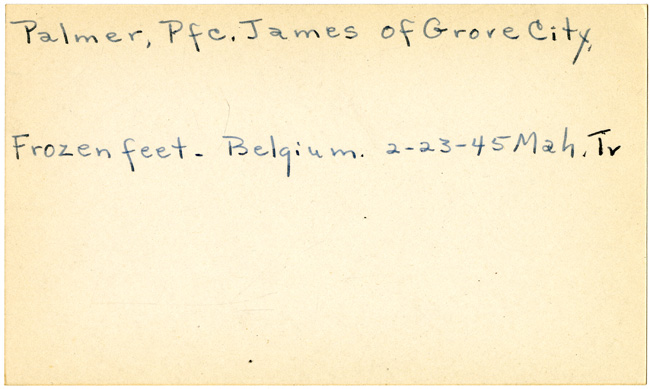 Palmer, Pfc. James of Grove City,
Frozen feet - Belgium. 2-23-45 Mah. Tr